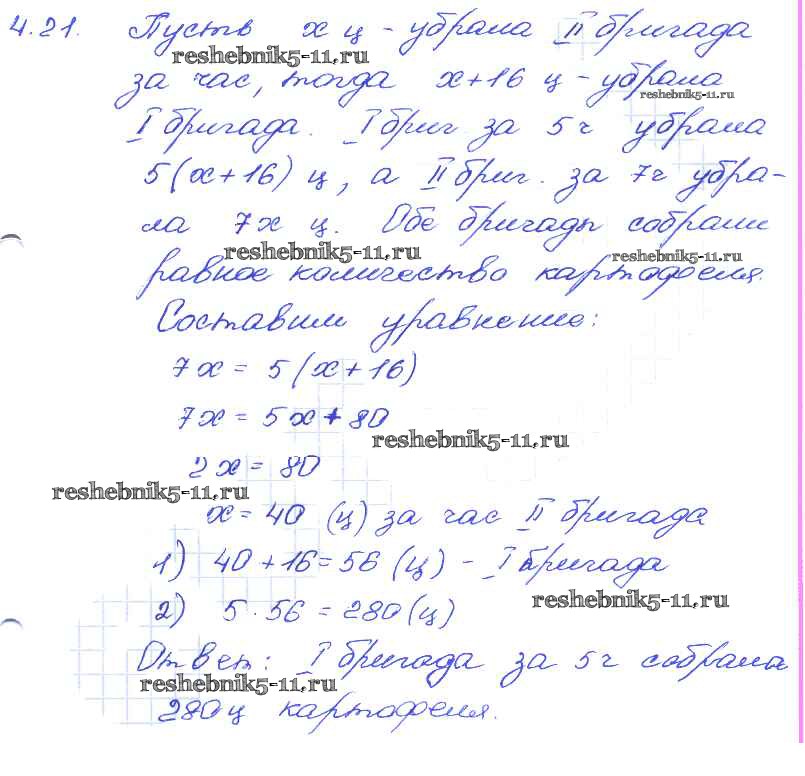 4.21. Пусть х ц - убрала II бригада
reshebnik5-11.ru
за час, тогда х+16 ц - убрала
reshebnik5-11.ru
I бригада. I бриг за 5ч убрала
5(х+16) ц, а II бриг. за 7ч убра-
ла 7х ц. Обе бригады собрали
reshebnik5-11.ru
reshebnik5-11.ru
равное количество картофеля.
Составим уравнение:
7х = 5(х+16)
7х = 5х + 80
reshebnik5-11.ru
2х = 80
reshebnik5-11.ru
х = 40 (ц) за час II бригада
1) 40+16=56 (ц) - I бригада
reshebnik5-11.ru
2) 5·56 = 280 (ц)
Ответ: I бригада за 5ч собрала
reshebnik5-11.ru
280ц картофеля.